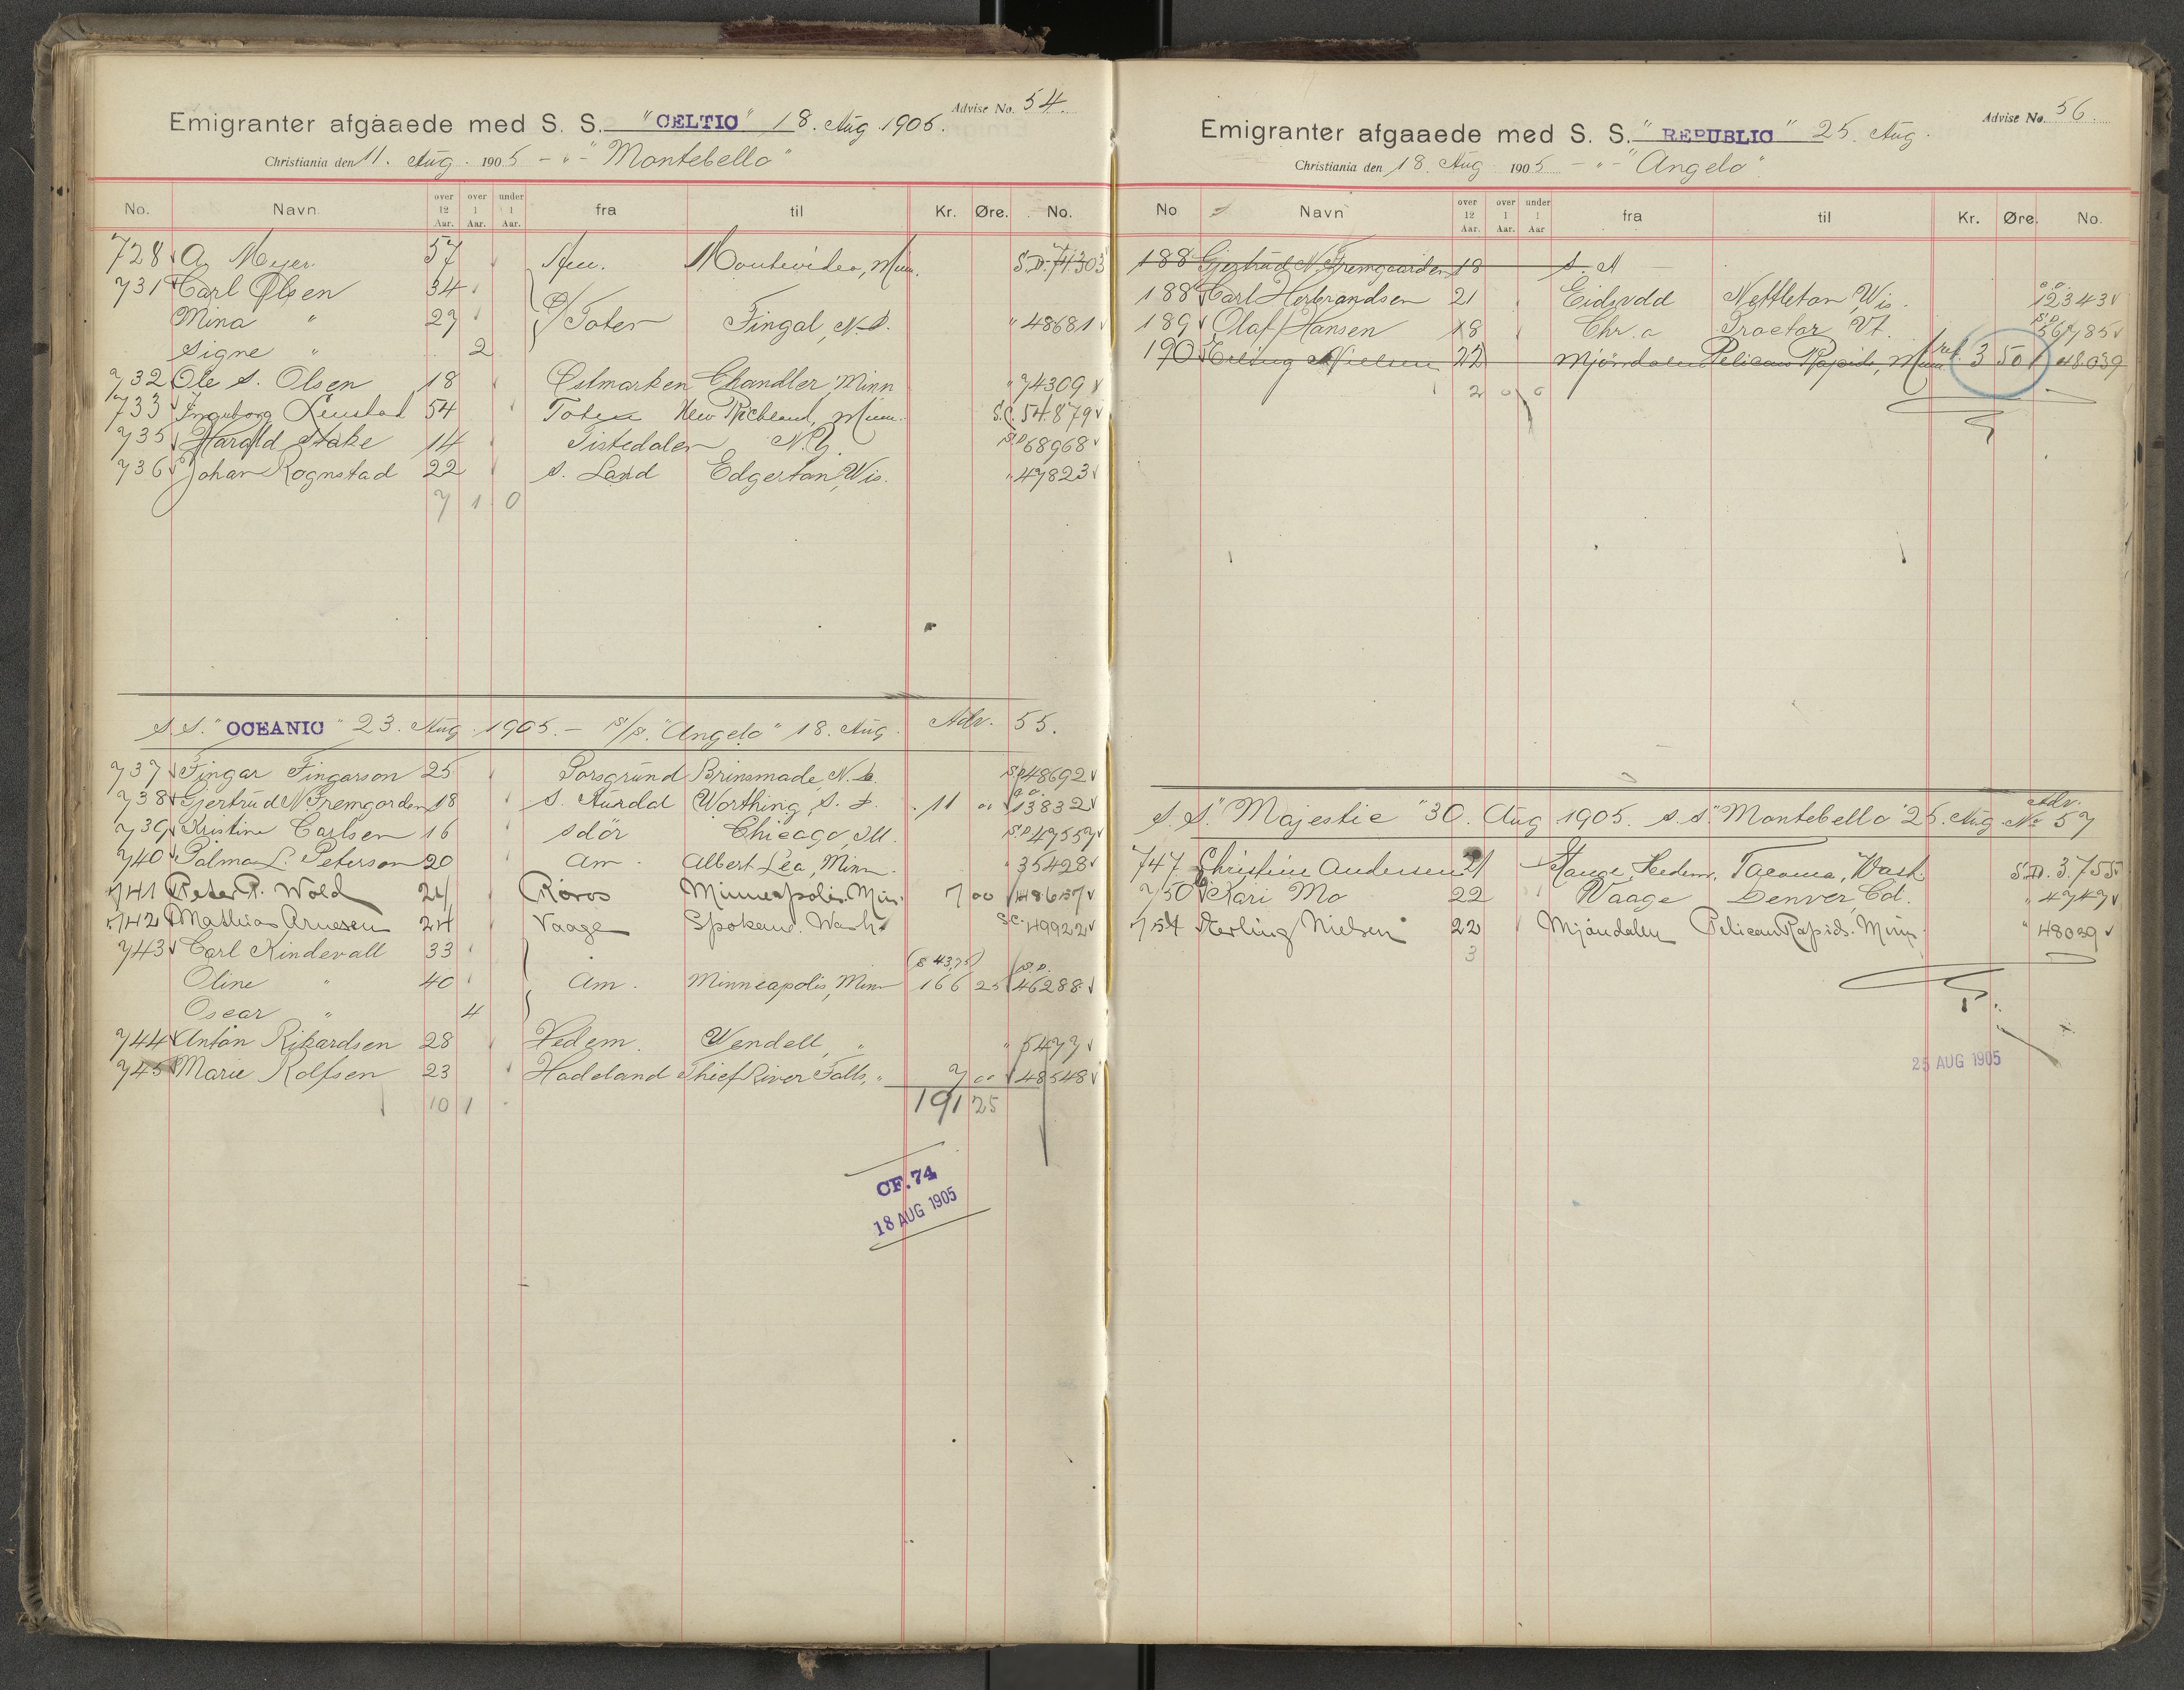 Advise No. 54.
Emigranter afgaaede med S. S. "CELTIC" 18. Aug. 1905.
Christiania den 11. Aug. 1905 - " - "Montebello"
No. Navn over 12 Aar. over 1 Aar. under 1 Aar. fra til Kr. Øre. No.
728 A. Meyer 57 Am. Montevideo, Minn. S.D. 71303
731 Carl Olsen 34
Mina " 27 Ø/Toten Fingal, N.D. " 48681
Signe " 2
732 Ole S. Olsen 18 Østmarken Chandler, Minn " 74309
733 Ingeborg 54 Toten New Richland, Minn. S.C. 54879
735 Harald Stake 14 Tistedalen N.Y. S.D. 68968
736 Johan Rognstad 22 S. Land Edgerton, Wis. " 47823
7 1 0
S.S. "OCEANIC" 23. Aug. 1905. - S/S. "Angelo" 18. Aug. Adv. 55.
737 Fingar Fingarson 25 Porsgrund Brinsmade, N.D. S.D. 48692
738 Gjertrud N. Fremgorden 18 S. Aurdal Worthing, S.D. 11 " 13832
739 Kristine Carlsen 16 Chicago, Ill. S.D. 47557
740 Palma L. Peterson 20 Am. Albert Lea, Minn. " 35428
741 Peter P. Wold 24 Röros Minneapolis. Min. 7 00 48657
742 Mathias Arnesen 24 Vaage Spokane. Wash. S.C. 49922
743 Carl Kindevall 33
($ 43,75) S.D.
Oline " 40 Am. Minneapolis, Minn 166 25 46288
Oscar " 4
744 Anton Rikardsen 28 Hedem. Wendell, " " 5477
745 Marie Rolfsen 23 Hadeland Thief River Falls, " 7 00 48548
10 1 191 25
CF. 74
18 AUG 1905
Advise No. 56.
Emigranter afgaaede med S. S. "REPUBLIC" 25. Aug.
Christiania den 18. Aug 1905 - " - "Angelo"
No Navn over 12 Aar. over 1 Aar. under 1 Aar fra til Kr. Øre. No.
188 Gjertrud N. Fremgaarden 18 S. A
188 Carl Herbrandsen 21 Eidsvold Nettleton, Wis. 12343
189 Olaf Hansen 18 Chr.a Proctor Vt. S.D. 56785
190 Erling Nielsen 22 Mjöndalen Pelican Rapids, Minn ret. 3 50 48039
2 0 0
S.S. "Majestic" 30. Aug 1905. S.S. "Montebello" 25. Aug Adv. No 57
747 Christine Andersen 21 Stange, Hedem. Tacoma, Wash. S.D. 3.755
750 Kari Mo 22 Vaage Denver Col. " 4747
754 Herling Nielsen 22 Mjöndalen Pelican Rapids. Minn. " 48039
3
25 AUG 1905